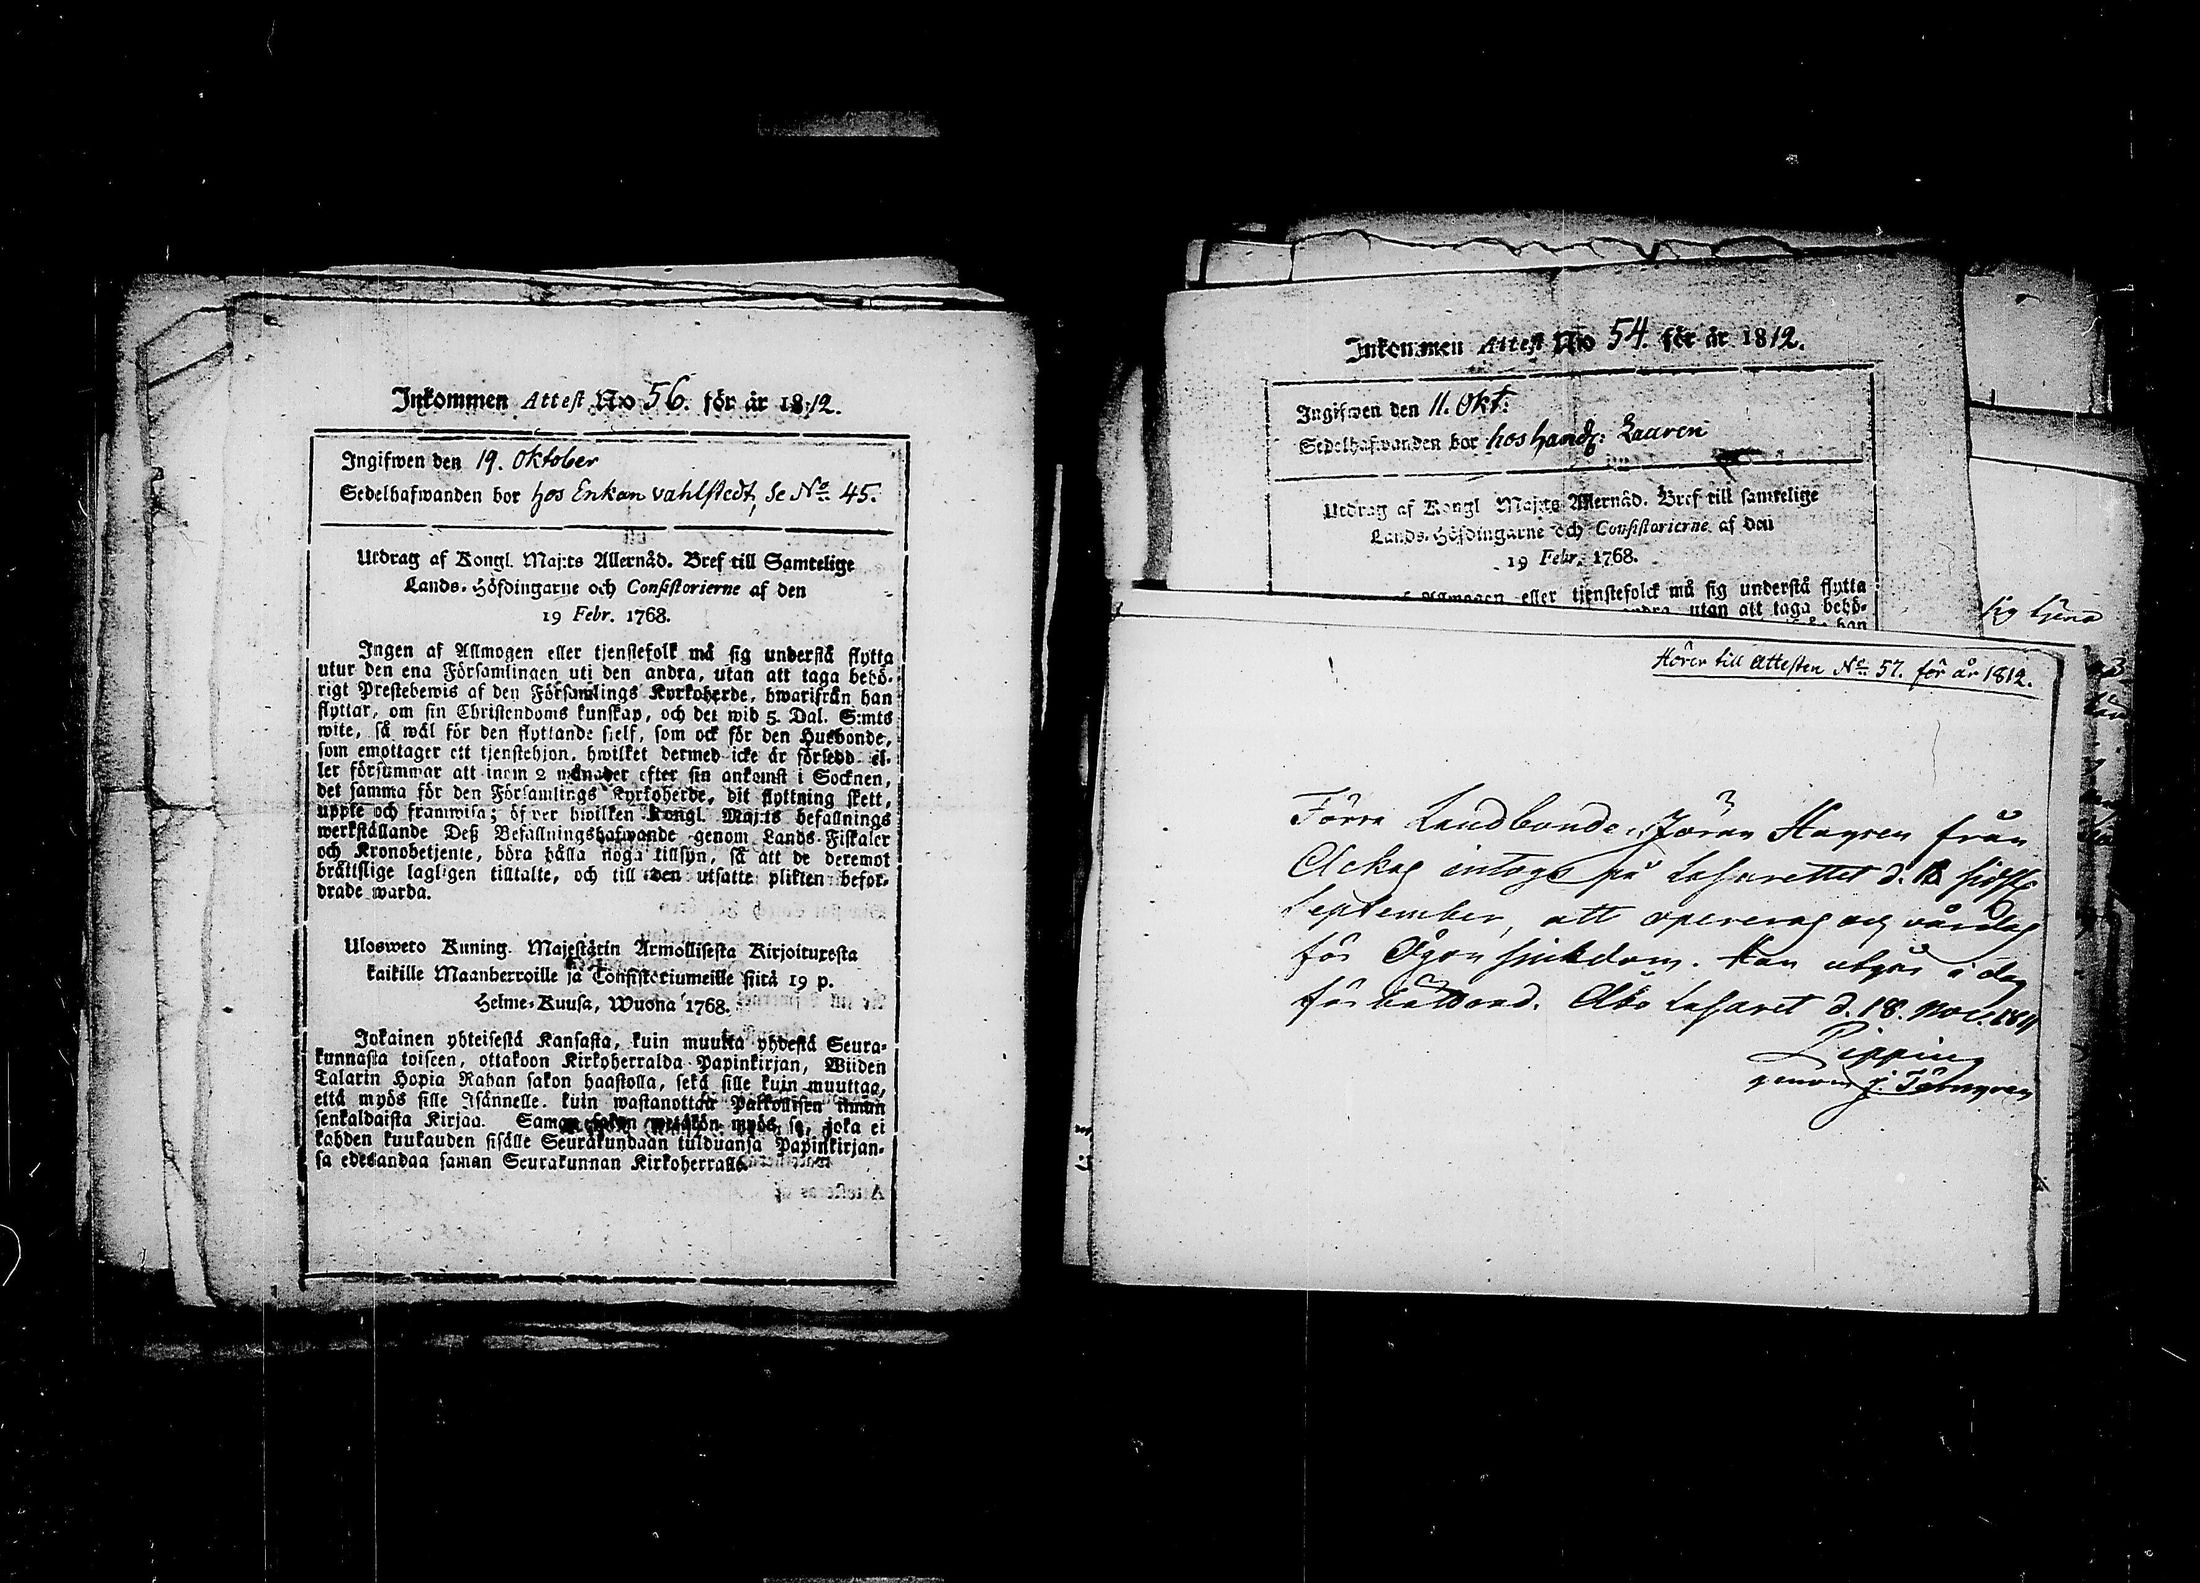 Inkommen Attest No 56. för år 1812.
Ingifwen den 19. Oktober
Sedelhafwanden bor hos Enkan Vahlstedt, se No 45.
Utdrag af Kongl. Maj:ts Allernåd. Bref till Samtelige
Lands-Höfdingarne och Consistorierne af den
19 Febr. 1768.
Ingen af Allmogen eller tjenstefolk må sig understå flytta
utur den ena Församlingen uti den andra, utan att taga behö-
rigt Prestebewis af den Församlings Kyrkoherde, hwarifrån han
flyttar, om sin Christendoms kunskap, och det wid 5. Dal. S:mts
wite, så wäl för den flyttande sielf, som ock för den Husbonde,
som emottager ett tjenstehjon, hwilket dermed icke är försedd el-
ler försummar att inom 2 månader efter sin ankomst i Socknen,
det samma för den Församlings Kyrkoherde, dit flyttning skett,
uppte och framwisa; öfwer hwilken Kongl. Maj:ts befallnings
werkställande Deß Befallningshafwande genom Lands-Fiskaler
och Kronobetjente, böra hålla noga tillsyn, så att de deremot
bråttslige lagligen tilltalte, och till den utsatte plikten befor-
drade warda.
Ulosweto Kuning. Majestätin Armollisesta Kirjoituxesta
kaikille Maanherroille ja Consistoriumeille siitä 19 p.
Helme-Kuusa, Wuona 1768.
Jokainen yhteisestä Kansasta, kuin muutta yhdestä Seura-
kunnasta toiseen, ottakoon Kirkoherralda Papinkirjan, Wiiden
Talarin Hopia Rahan sakon haastolla, sekä sille kuin muuttaa,
että myös sille Isännelle, kuin wastanottaa Palkollisen ilman
senkaldaista Kirjaa. Saman sakon wetäkön myös se, joka ei
kahden kuukauden sisälle Seurakundaan tulduansa Papinkirjan-
sa edesandaa saman Seurakunnan Kirkoherralle.
Inkommen Attest No 54. för år 1812.
Ingifwen den 11. Okt:
Sedelhafwanden bor hos handl: Lauren
Utdrag af Kongl Maj:ts Allernåd. Bref till samtelige
Lands-Höfdingarne och Consistorierne af den
19 Febr. 1768.
af Allmogen eller tjenstefolck må sig understå flytta
andra, utan att taga behö-
han
sig tjena
Hörer till Attesten No 57. för år 1812.
Förra Landbonde Jöran Hagren från
intogs på Lasarettet d. 18 sidstl
September, att opereras och vårdas
för Ögon sjukdom. Han utgår i dag
förbättrad. Åbo Lasaret d. 18. Nov. 1811
Pipping
genom J. Törnqvan